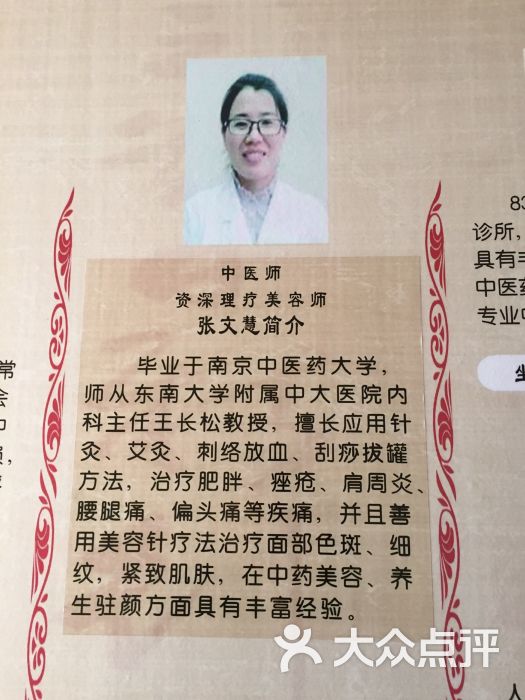 中医师
资深理疗美容师
张文慧简介
毕业于南京中医药大学，
师从东南大学附属中大医院内
科主任王长松教授，擅长应用针
灸、艾灸、刺络放血、刮痧拔罐
方法，治疗肥胖、痤疮、肩周炎、
腰腿痛、偏头痛等疾痛，并且善
用美容针疗法治疗面部色斑、细
纹，紧致肌肤，在中药美容、养
生驻颜方面具有丰富经验。
常
会
损，
83
诊所，
具有丰
中医药
专业中
大众点评